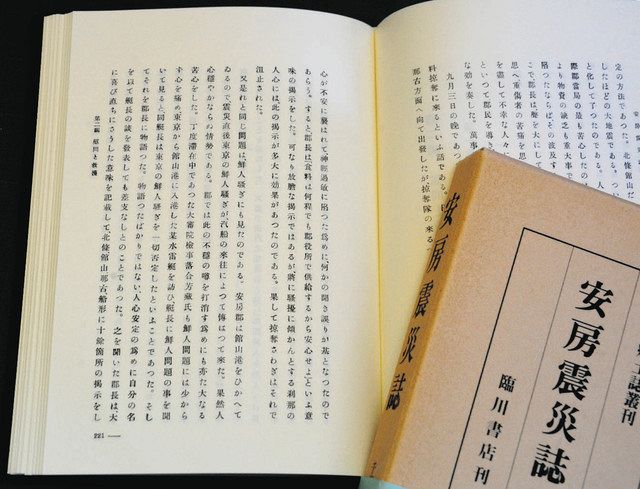 定の方法であつた。北條館山だ
したほどの大地震である。
と化して了つたのである。
際郡當局の最も苦心したの
より物資の缺乏も重大事で
陷つたならばその波及す
こで郡長は擧大に、
思へ、重傷者の苦痛を思
を盡して不幸な人々に
といつて郡民を
な効を奏した。萬事
九月三日の晩であ
料掠奪に來るといふ話である。
那古方面へ向て出發したが、掠奪隊の來る
心が不安に襲はれて神經過敏に陷つた爲めに、何かの聞き誤りが基となつたので
あらう。すると、郡長は食料は何程でも郡役所で供給するから安心せよといふ意
味の掲示をした。可なり放膽な掲示ではあるが、廣に騷擾に傾かんとする刹那の
人心には、此の掲示が多大に効果があつたのである。果して掠奪さわぎはそれで
沮止された。
又是れと同じ問題は、鮮人騷ぎにも見たのである。安房郡は館山港をひかへて
ゐるので震災直後東京の鮮人騷ぎが、汽船の來往によつて傳はつて來た。果然人
心穩やかならぬ情勢である。郡では此の不穩の噂を打消す爲めにも亦た大なる
苦心をした。丁度滯在中であつた大審院檢事落合芳藏氏も鮮人問題には少から
ず心を痛め、東京から館山港に入港した某水雷艇を訪ひ、艇長に鮮人問題の事を聞
いて見ると、同艇長は東京の鮮人騷ぎを一切否定したといふことであつた。そし
てそれを郡長に物語つた。物語つたばかりではない、人心安定の爲めに自分の名
を以て艇長の談を發表しても差支なしとのことであつた。之を聞いた郡長は、大
に喜び、直ちにさうした意味を記載して、北條、館山、那古、船形に十餘箇所の掲示をし
第二編 慰問と救護
221
安房震災誌
土誌叢刊
安房震災誌
臨川書店刊